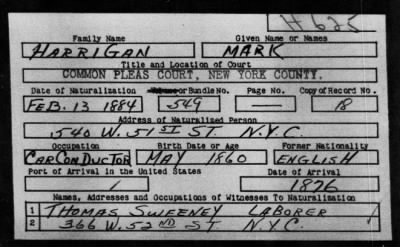 H625
Family Name Given Name or Names
HARRIGAN MARK
Title and Location of Court
COMMON PLEAS COURT, NEW YORK COUNTY.
Date of Naturalization Volume or Bundle No. Page No. Copy of Record No.
FEB. 13 1884 549 — 18
Address of Naturalized Person
540 W. 51 ST ST. N.Y.C.
Occupation Birth Date or Age Former Nationality
CAR CONDUCTOR MAY 1860 ENGLISH
Port of Arrival in the United States Date of Arrival
1 1876
Names, Addresses and Occupations of Witnesses To Naturalization
1 THOMAS SWEENEY LABORER
2 366 W. 52 ND ST N.Y.C.